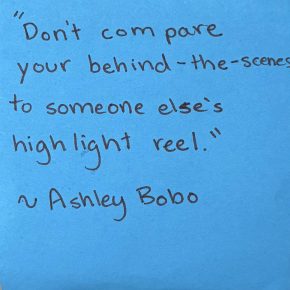 "Don't compare
your behind-the-scenes
to someone else's
highlight reel."
~ Ashley Bobo